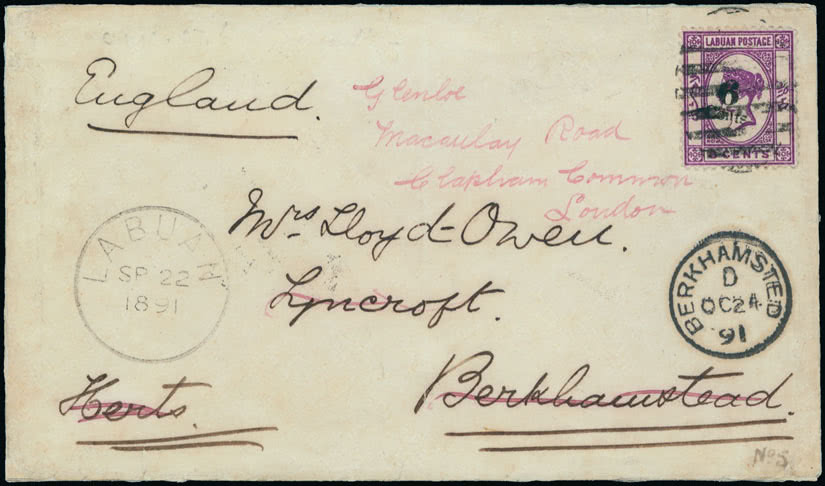 LABUAN POSTAGE
6
Cents
CENTS
England.
Glenloe
Macaulay Road
Clapham Common
London
Mrs Lloyd-Owen.
Lyncroft.
LABUAN
SP 22
1891
BERKHAMSTED
D
OC 24
91
Herts.
Berkhamstead.
No 5